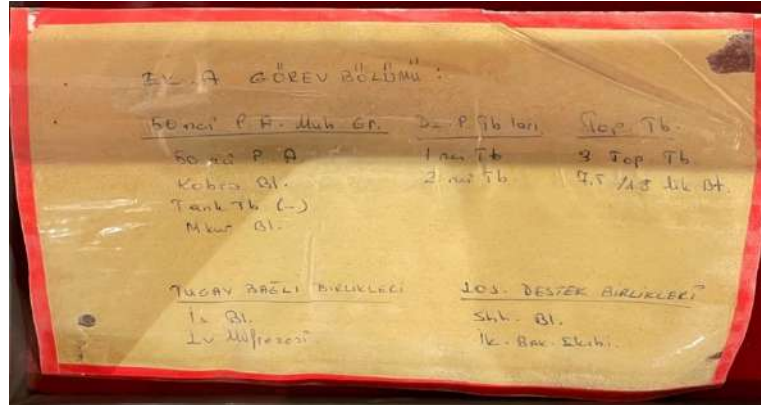 EK-A GÖREV BÖLÜMÜ :
50 nci P. A. Muh. Gr.
50 nci P. A
Kobra Bl.
Tank Tb (-)
Bl.
Dz. P. Tb ları
1 nci Tb
2 nci Tb
Top. Tb.
3 Top. Tb.
7.5 lik Bt.
TUGAY BAĞLI BİRLİKLERİ
İs. Bl.
Müfrezesi
LOJ. DESTEK BİRLİKLERİ
Shh. Bl.
İk. Bak. Ekibi.